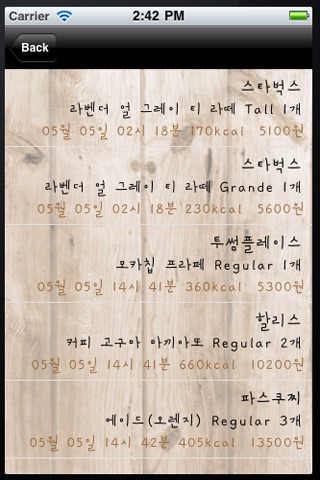 Carrier 2:42 PM
Back
스타벅스
라벤더 얼 그레이 티 라떼 Tall 1개
05월 05일 02시 18분 170kcal 5100원
스타벅스
라벤더 얼 그레이 티 라떼 Grande 1개
05월 05일 02시 18분 230kcal 5600원
투썸플레이스
모카칩 프라페 Regular 1개
05월 05일 14시 41분 360kcal 5300원
할리스
커피 고구마 아끼아또 Regular 2개
05월 05일 14시 41분 660kcal 10200원
파스쿠찌
에이드(오렌지) Regular 3개
05월 05일 14시 42분 405kcal 13500원